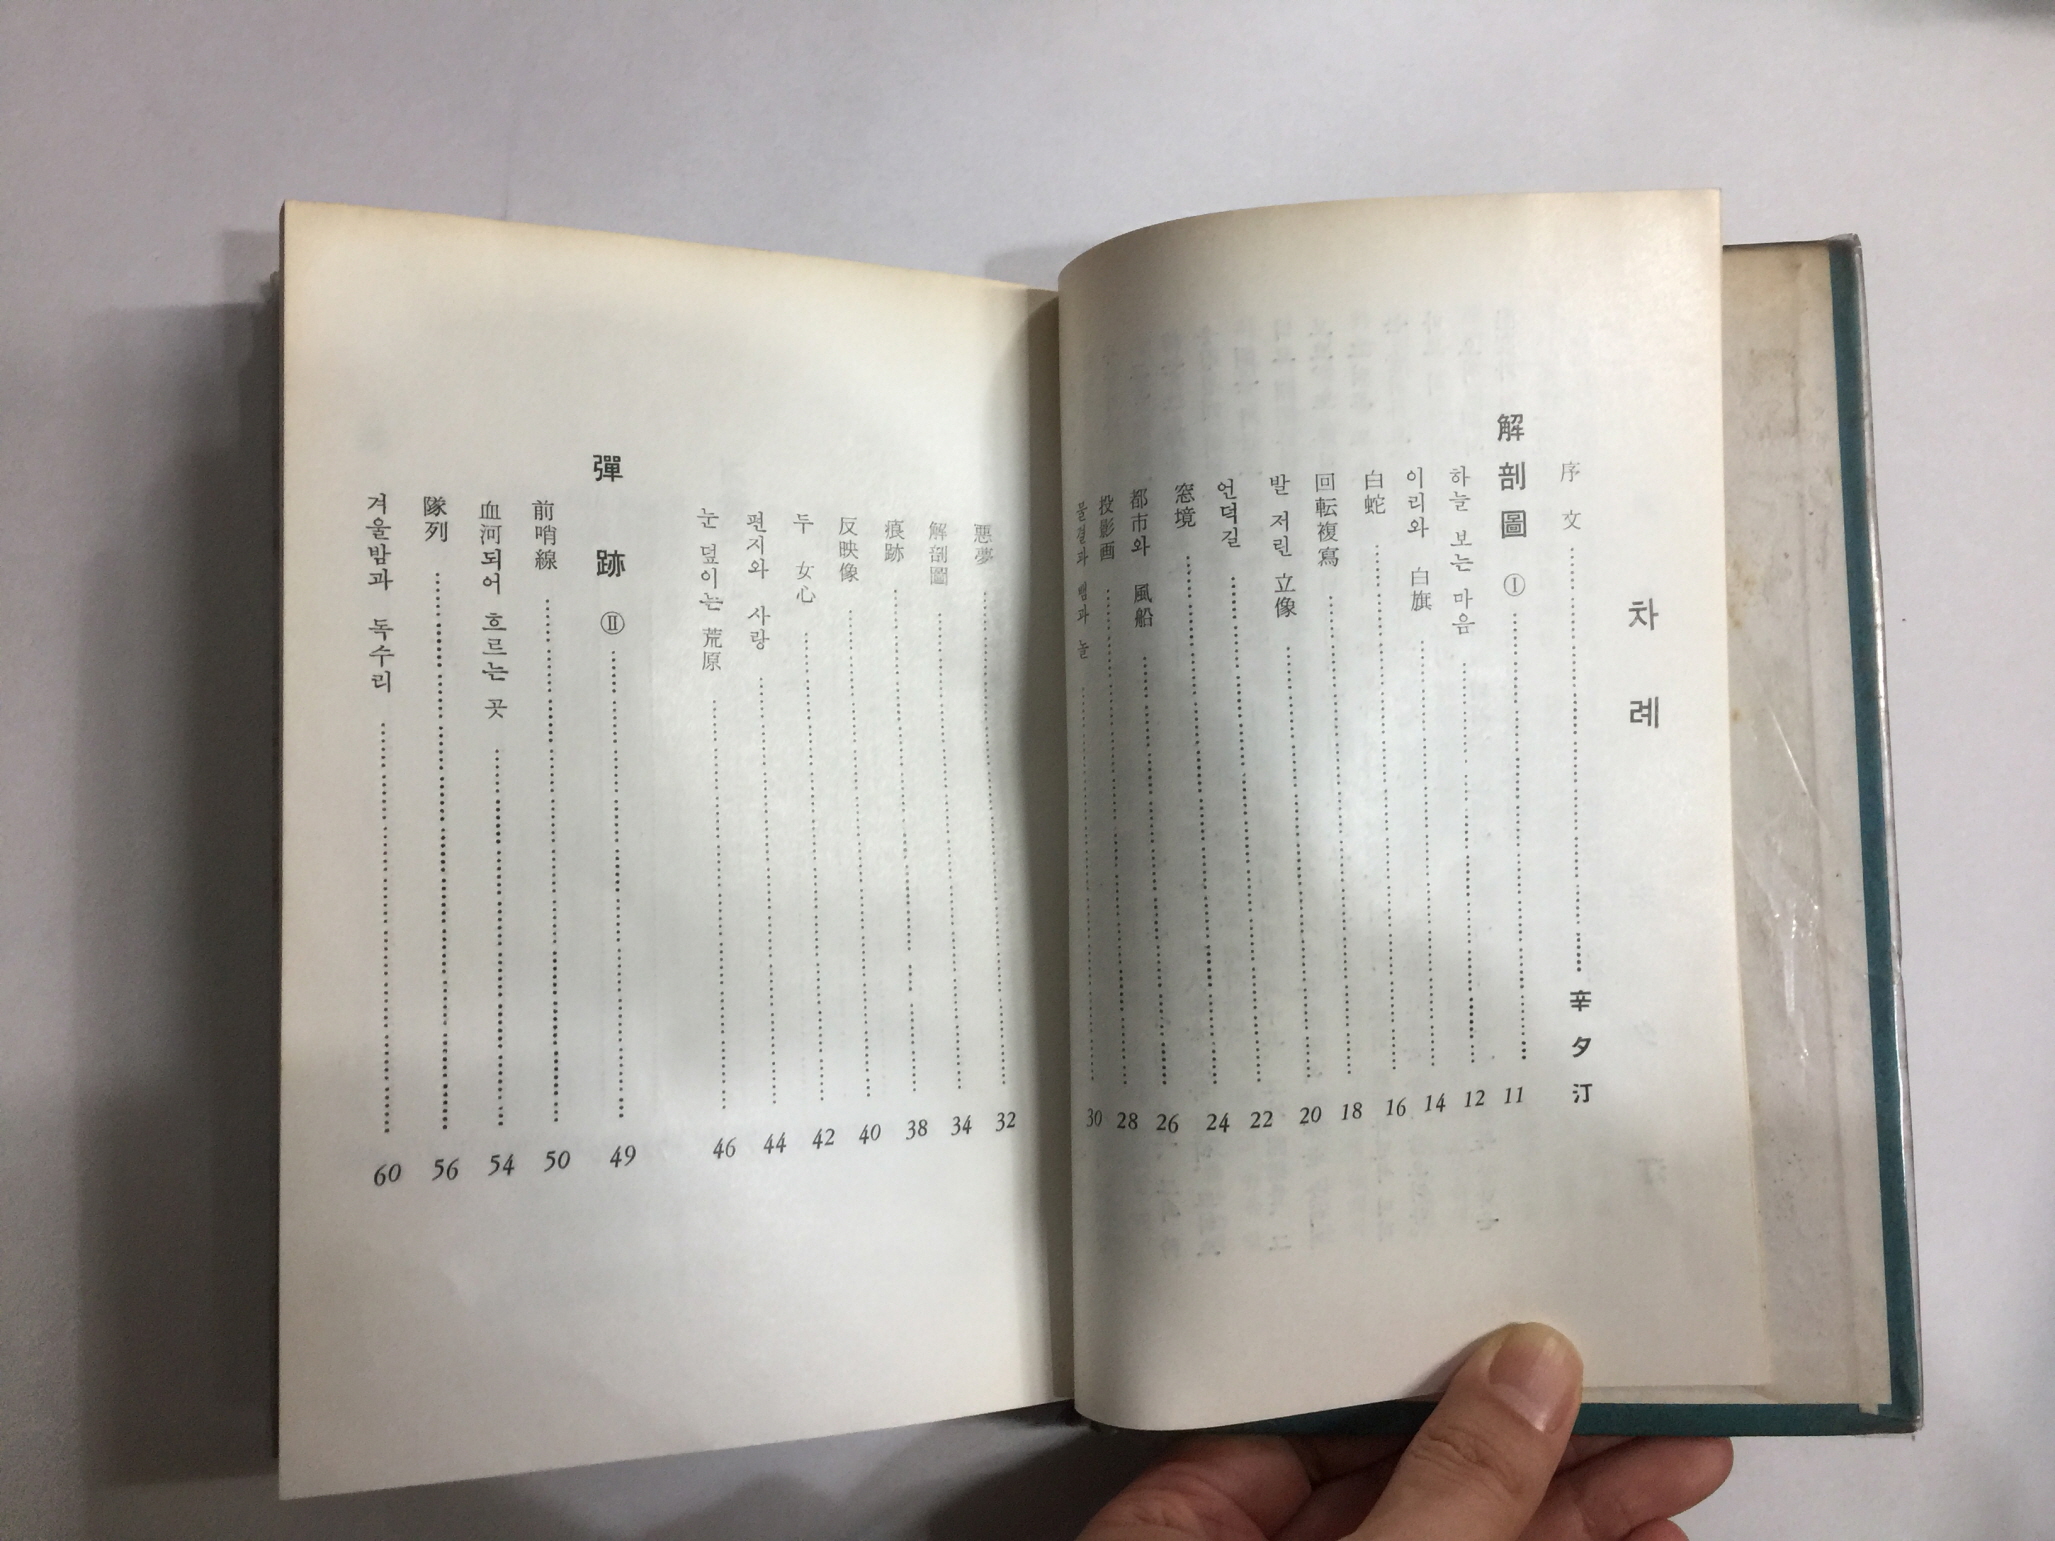 차례
序文 辛夕汀
解剖圖 Ⓘ 11
하늘 보는 마음 12
이리와 白旗 14
白蛇 16
回転複寫 18
발 저린 立像 20
언덕길 22
窓境 24
都市와 風船 26
投影画 28
물결과 뱀과 놀 30
悪夢 32
解剖圖 34
痕跡 38
反映像 40
두 女心 42
편지와 사랑 44
눈 덮이는 荒原 46
彈跡 Ⅱ 49
前哨線 50
血河되어 흐르는 곳 54
隊列 56
겨울밤과 독수리 60